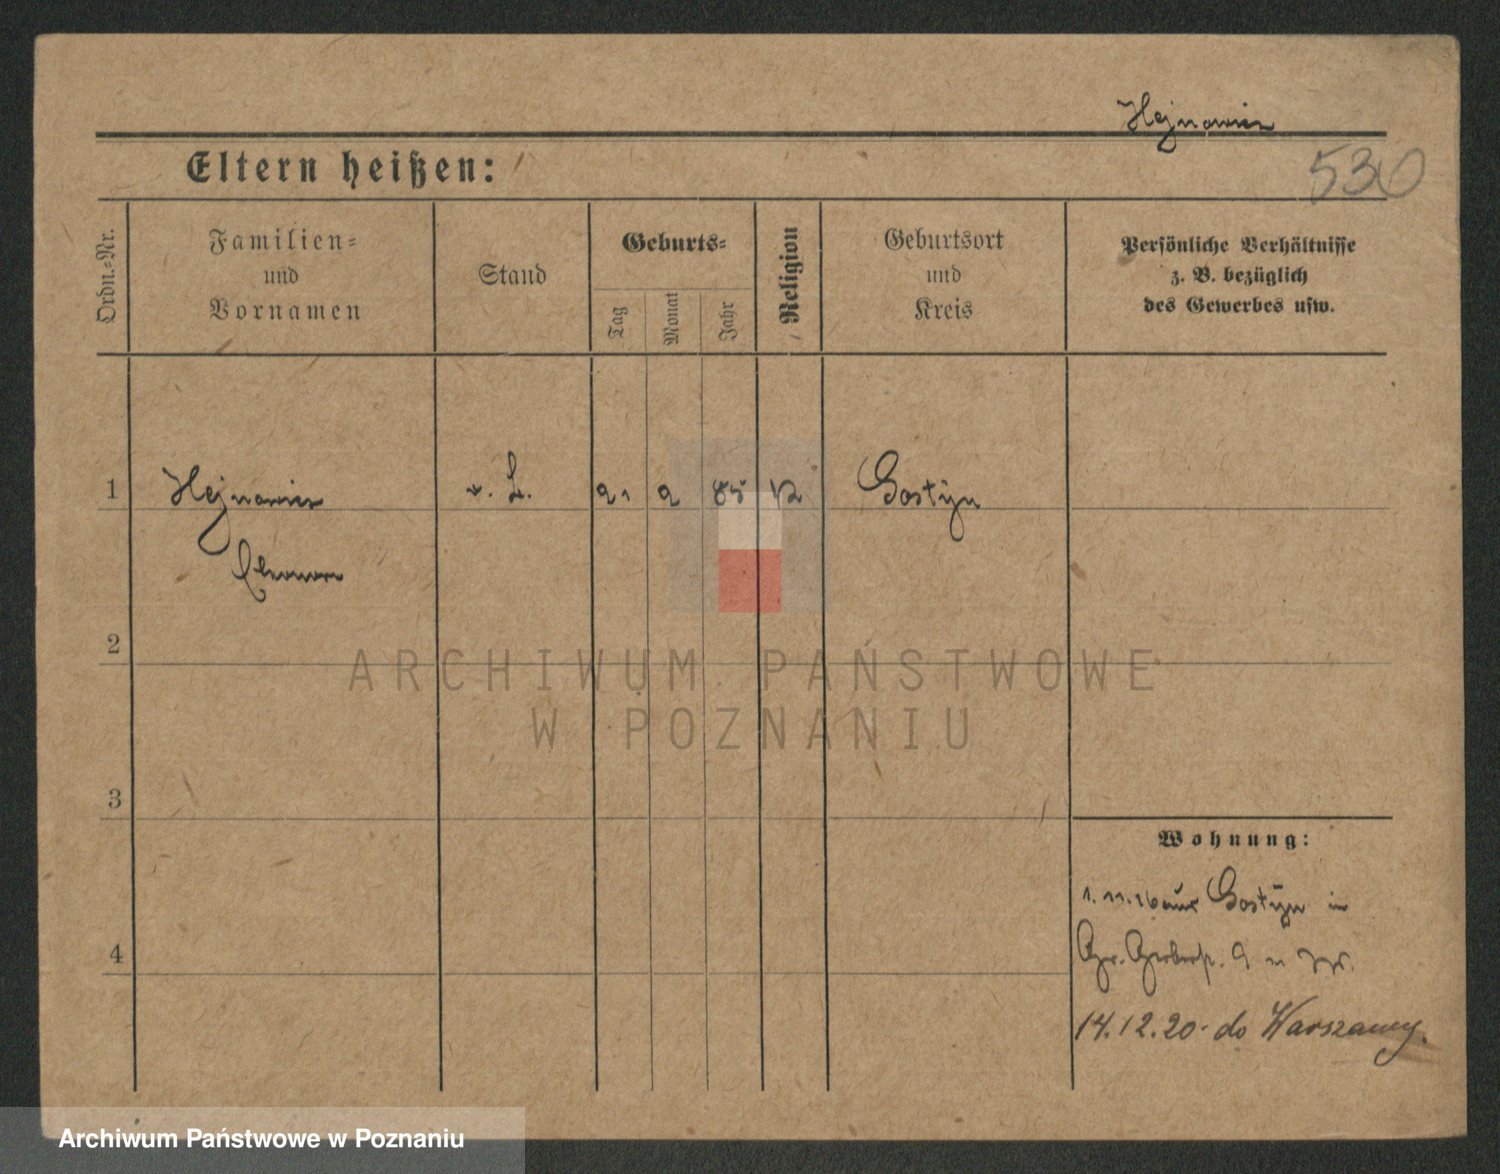 Hejnowicz
530
Eltern heißen:
Ordn.-Nr.
Familien-
und
Vornamen
Stand
Geburts-
Tag
Monat
Jahr
Religion
Geburtsort
und
Kreis
Persönliche Verhältnisse
z. B. bezüglich
des Gewerbes usw.
1
Hejnowicz
21 2 85
Gostyn
2
ARCHIWUM PAŃSTWOWE
W POZNANIU
3
Wohnung:
1. 11. 16 aus Gostyn in
Gr. Gerberstr. 9
4
14.12.20. do Warszawy.
Archiwum Państwowe w Poznaniu